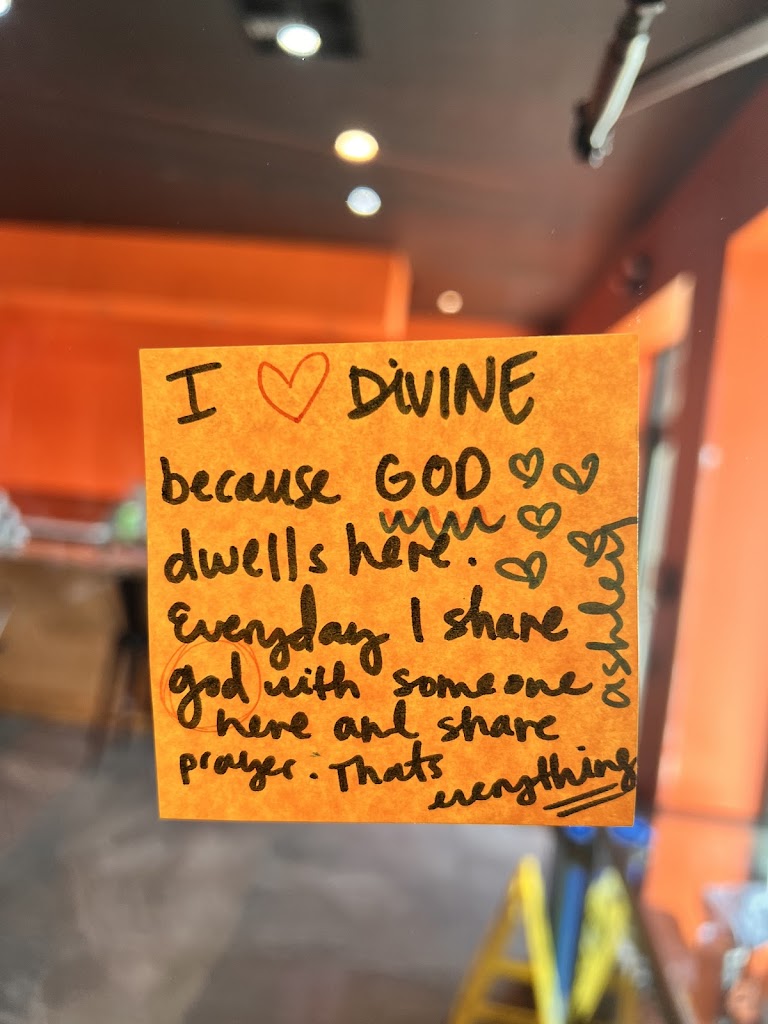 I ♡ DiViNE
because GOD
dwells here.
Everyday I share
god with someone
here and share
prayer. Thats
everything
ashley